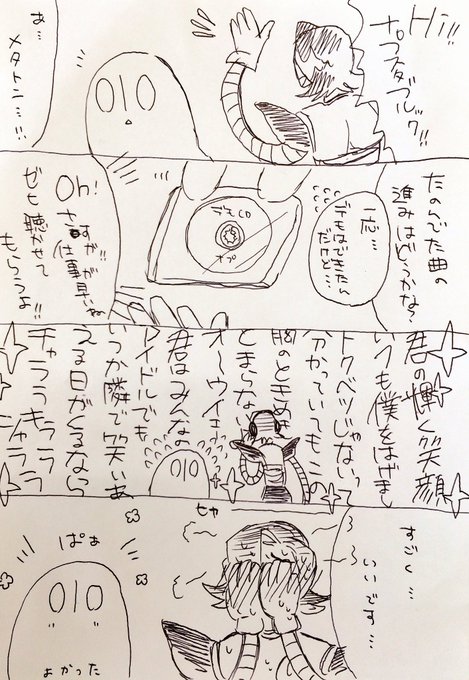 Hi!!
ナプスタブルック!!
あ…
メタトン…!!
たのんでた曲の
進みはどうかな?
一応…
デモはできたん
だけど…
でもCD
ナプ
Oh!
さすが!!
仕事が早いね
ゼヒ聴かせて
もらうよ!!
君の輝く笑顔
いつも僕をはげまし
トクベツじゃないっ
分かっていてもこの
胸のときめき
とまらない
オーウイェ
君はみんなの
アイドルでも
いつか隣で笑いあ
える日がくるなら
チャララキラララ
ジャララ
すごく…
いいです…
ヒャ
ぱぁ
よかった